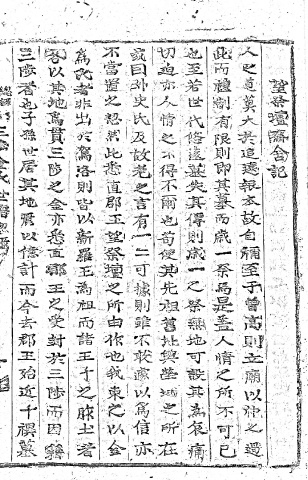 望祭壇齋舍記
人之道莫大於追遠報本故自禰至于曾高則立廟以神之過
此而禮制有限則即其墓而歲一祭焉是盖人情之所不可已
也至若世代修遠並失其傳則歲一之祭無地可設其為哀痛
切迫亦人情之不得不爾也苟使其先祖舊址與塋域之所在
或曰外史氏及故老之言有一二可據則雖不敢遽以爲信亦
不當置之忽然此悉直郡王望祭壇之所由作也我東之以金
爲氏者非出於駕洛則皆以新羅王爲祖而諸王子之胙土者
各以其地爲貫三陟之金亦悉直郡王之受封於三陟而因籍
三陟者也子孫世居其地以億計而今去郡王殆近十禩墓